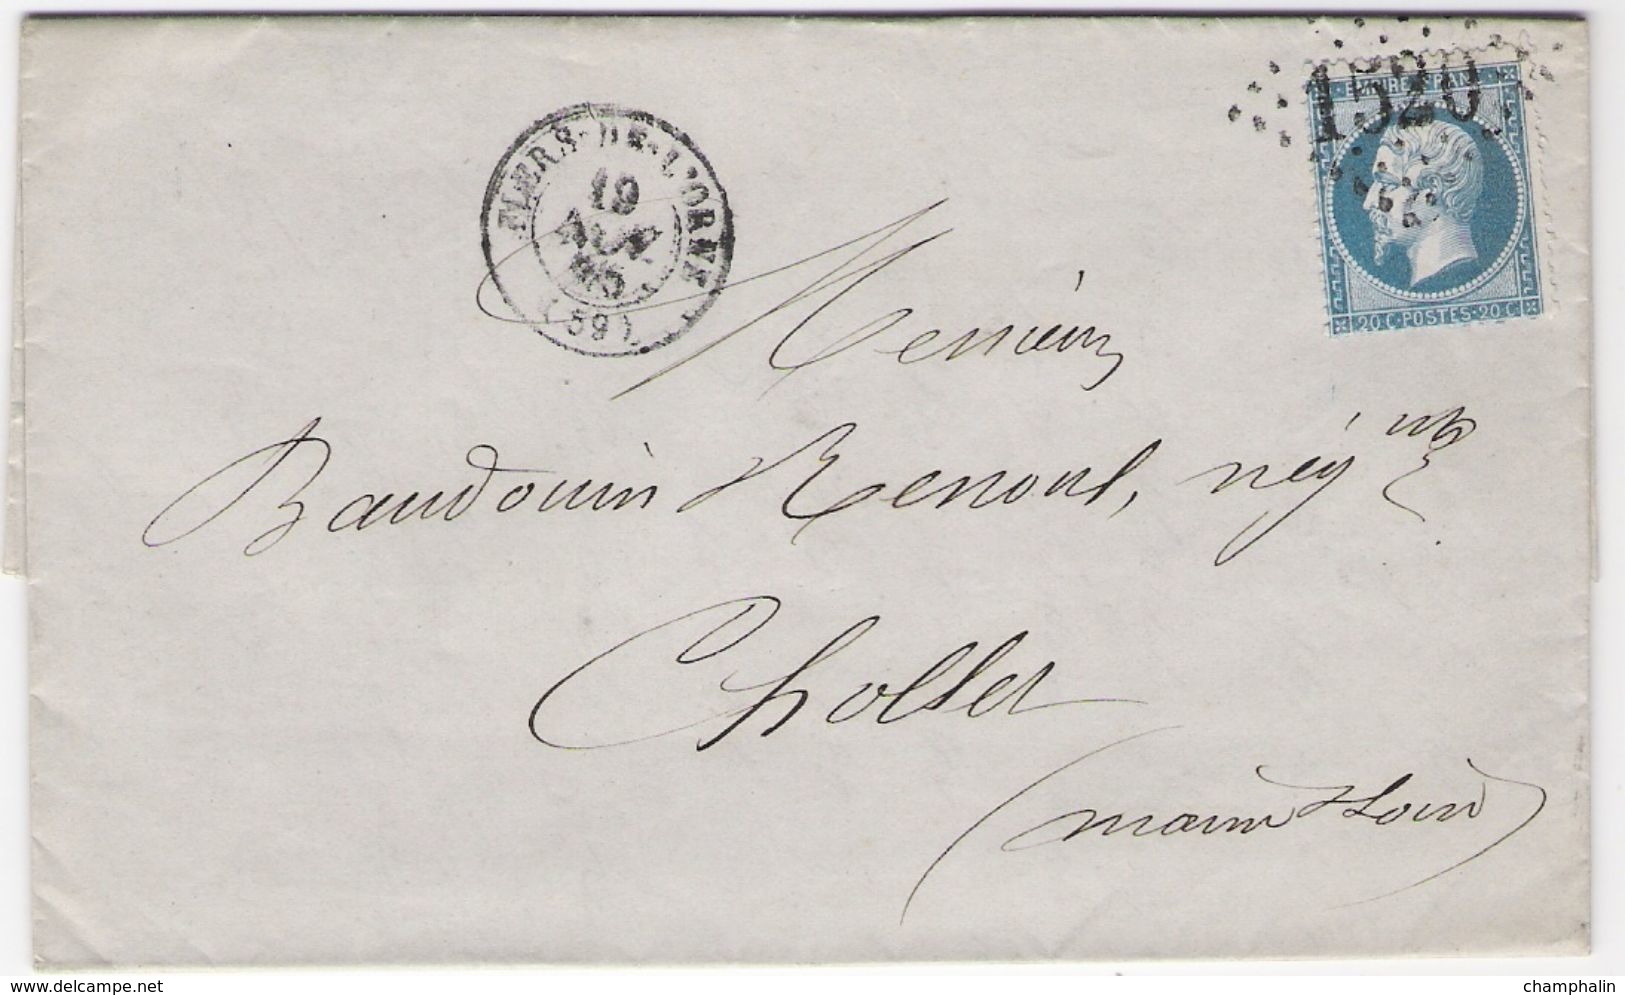 1520
EMPIRE FRANC
20 C · POSTES · 20 C
FLERS-DE-L'ORNE
19
65
(59)
Messieurs
Baudouin & Renoul, nég nts
Chollet
(Maine & Loire)
delcampe.net
champhalin